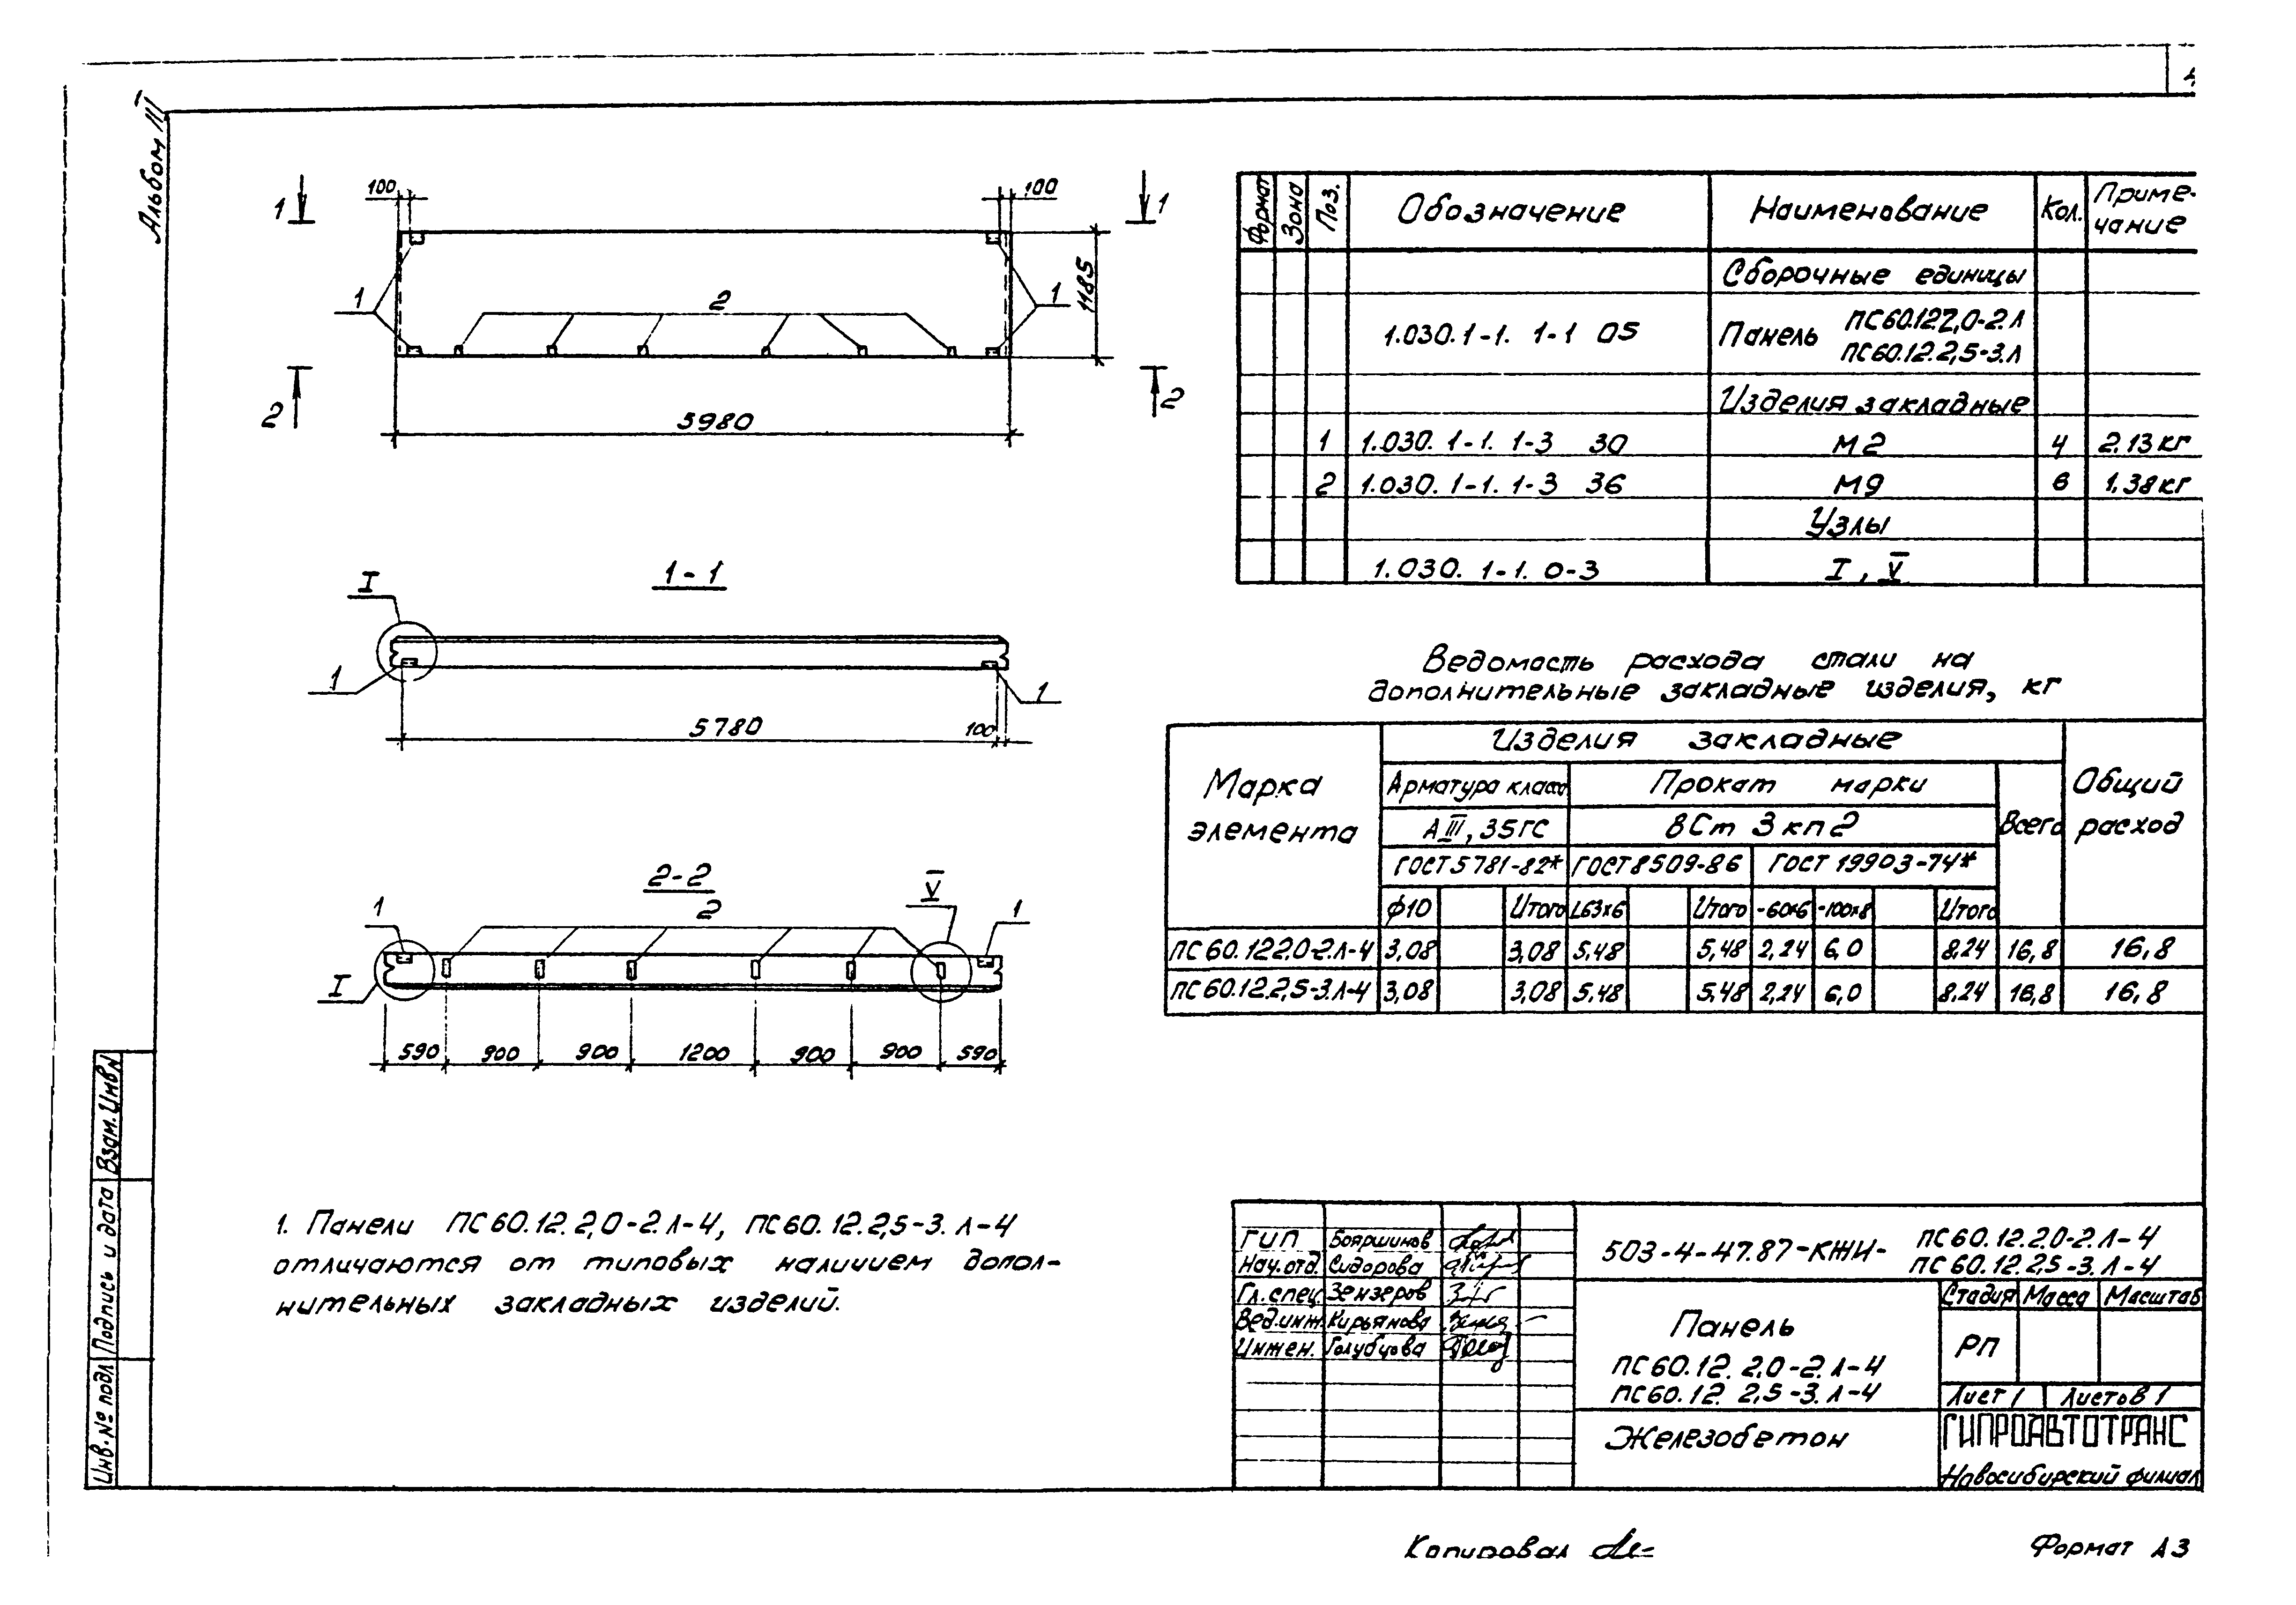 Альбом III
1
1
100
100
1185
1
2
1
2
2
5980
1-1
I
1
1
5780
100
2-2
V
2
1
1
I
590
900
900
1200
900
900
590
1. Панели ПС60.12.2,0-2.Л-4, ПС60.12.2,5-3.Л-4
отличаются от типовых наличием допол-
нительных закладных изделий.
Формат Зона Поз. Обозначение Наименование Кол. Приме-
чание
Сборочные единицы
1.030.1-1. 1-1 05 Панель ПС60.12.2,0-2.Л
ПС60.12.2,5-3.Л
Изделия закладные
1 1.030.1-1. 1-3 30 М2 4 2.13кг
2 1.030.1-1. 1-3 36 М9 6 1.38кг
Узлы
1.030.1-1. 0-3 I, V
Ведомость расхода стали на
дополнительные закладные изделия, кг
Марка
элемента
Изделия закладные
Общий
расход
Арматура класса Прокат марки
Всего
АIII, 35ГС ВСт 3кп2
ГОСТ 5781-82* ГОСТ 8509-86 ГОСТ 19903-74*
ф10 Итого L63х6 Итого -60х6 -100х8 Итого
ПС60.12.2.0-2.Л-4 3,08 3,08 5,48 5,48 2,24 6,0 8,24 16,8 16,8
ПС60.12.2,5-3.Л-4 3,08 3,08 5,48 5,48 2,24 6,0 8,24 16,8 16,8
ГИП Бояршинов
Нач.отд. Сидорова
Гл.спец. Зензеров
Вед.инж. Кирьянова
Инжен. Голубцова
503-4-47.87-КЖИ- ПС60.12.2.0-2.Л-4
ПС60.12.2,5-3.Л-4
Панель
ПС60.12. 2,0-2.Л-4
ПС60.12. 2,5-3.Л-4
Стадия Масса Масштаб
РП
Лист 1 Листов 1
Железобетон
ГИПРОАВТОТРАНС
Новосибирский филиал
Инв.№ подл Подпись и дата Взам.Инв.N
Копировал
Формат А3